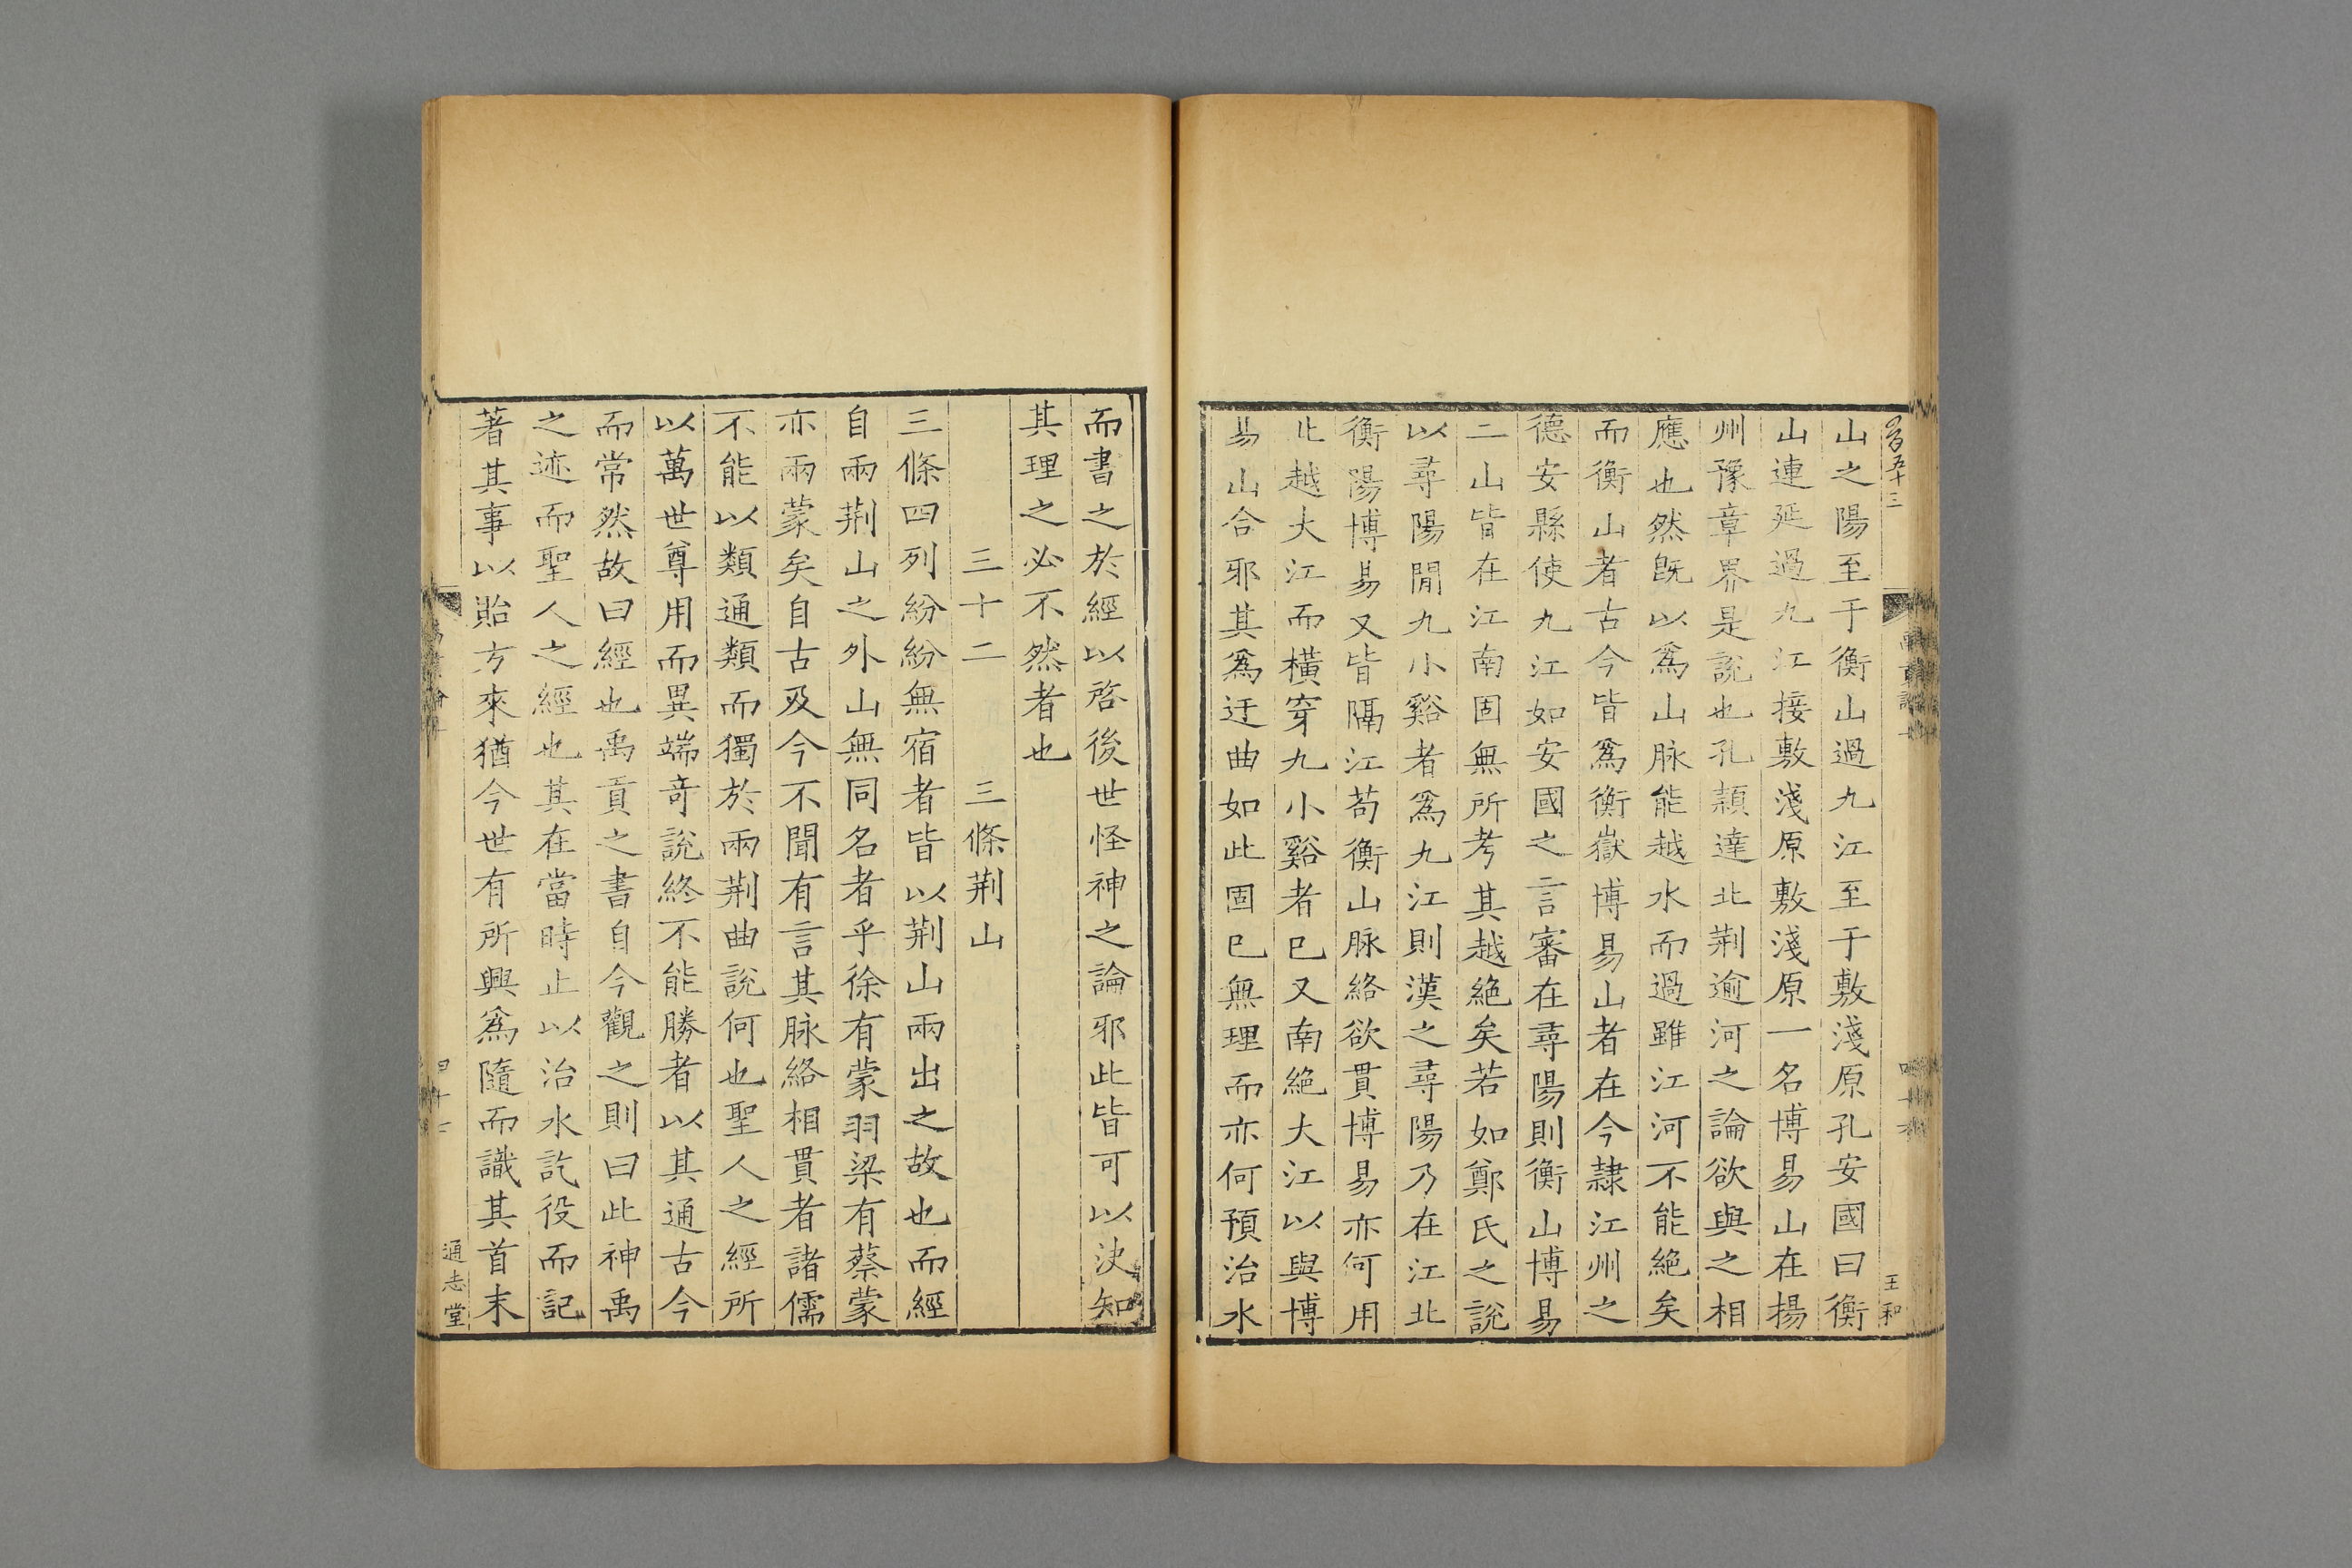 山之陽至于衡山過九江至于敷淺原孔安國曰衡
山連延過九江接敷淺原敷淺原一名博昜山在揚
州豫章界是說也孔頴達北荆逾河之論欲與之相
應也然旣以爲山脉能越水而過雖江河不能絶矣
而衡山者古今皆爲衡嶽博昜山者在今隷江州之
德安縣使九江如安國之言審在尋陽則衡山博昜
二山皆在江南固無所考其越絶矣若如鄭氏之說
以尋陽閒九小谿者爲九江則漢之尋陽乃在江北
衡陽博昜又皆隔江苟衡山脉絡欲貫博昜亦何用
北越大江而橫穿九小谿者巳又南絶大江以與博
昜山合邪其爲迂曲如此固巳無理而亦何預治水
王和
而書之於經以啓後世怪神之論邪此皆可以決知
其理之必不然者也
三十二 三條荆山
三條四列紛紛無宿者皆以荆山兩出之故也而經
自兩荆山之外山無同名者乎徐有蒙羽梁有蔡蒙
亦兩蒙矣自古及今不聞有言其脉絡相貫者諸儒
不能以類通類而獨於兩荆曲說何也聖人之經所
以萬世尊用而異端奇說終不能勝者以其通古今
而常然故曰經也禹貢之書自今觀之則曰此神禹
之迹而聖人之經也其在當時止以治水訖役而記
著其事以貽方來猶今世有所興爲隨而識其首末
通志堂